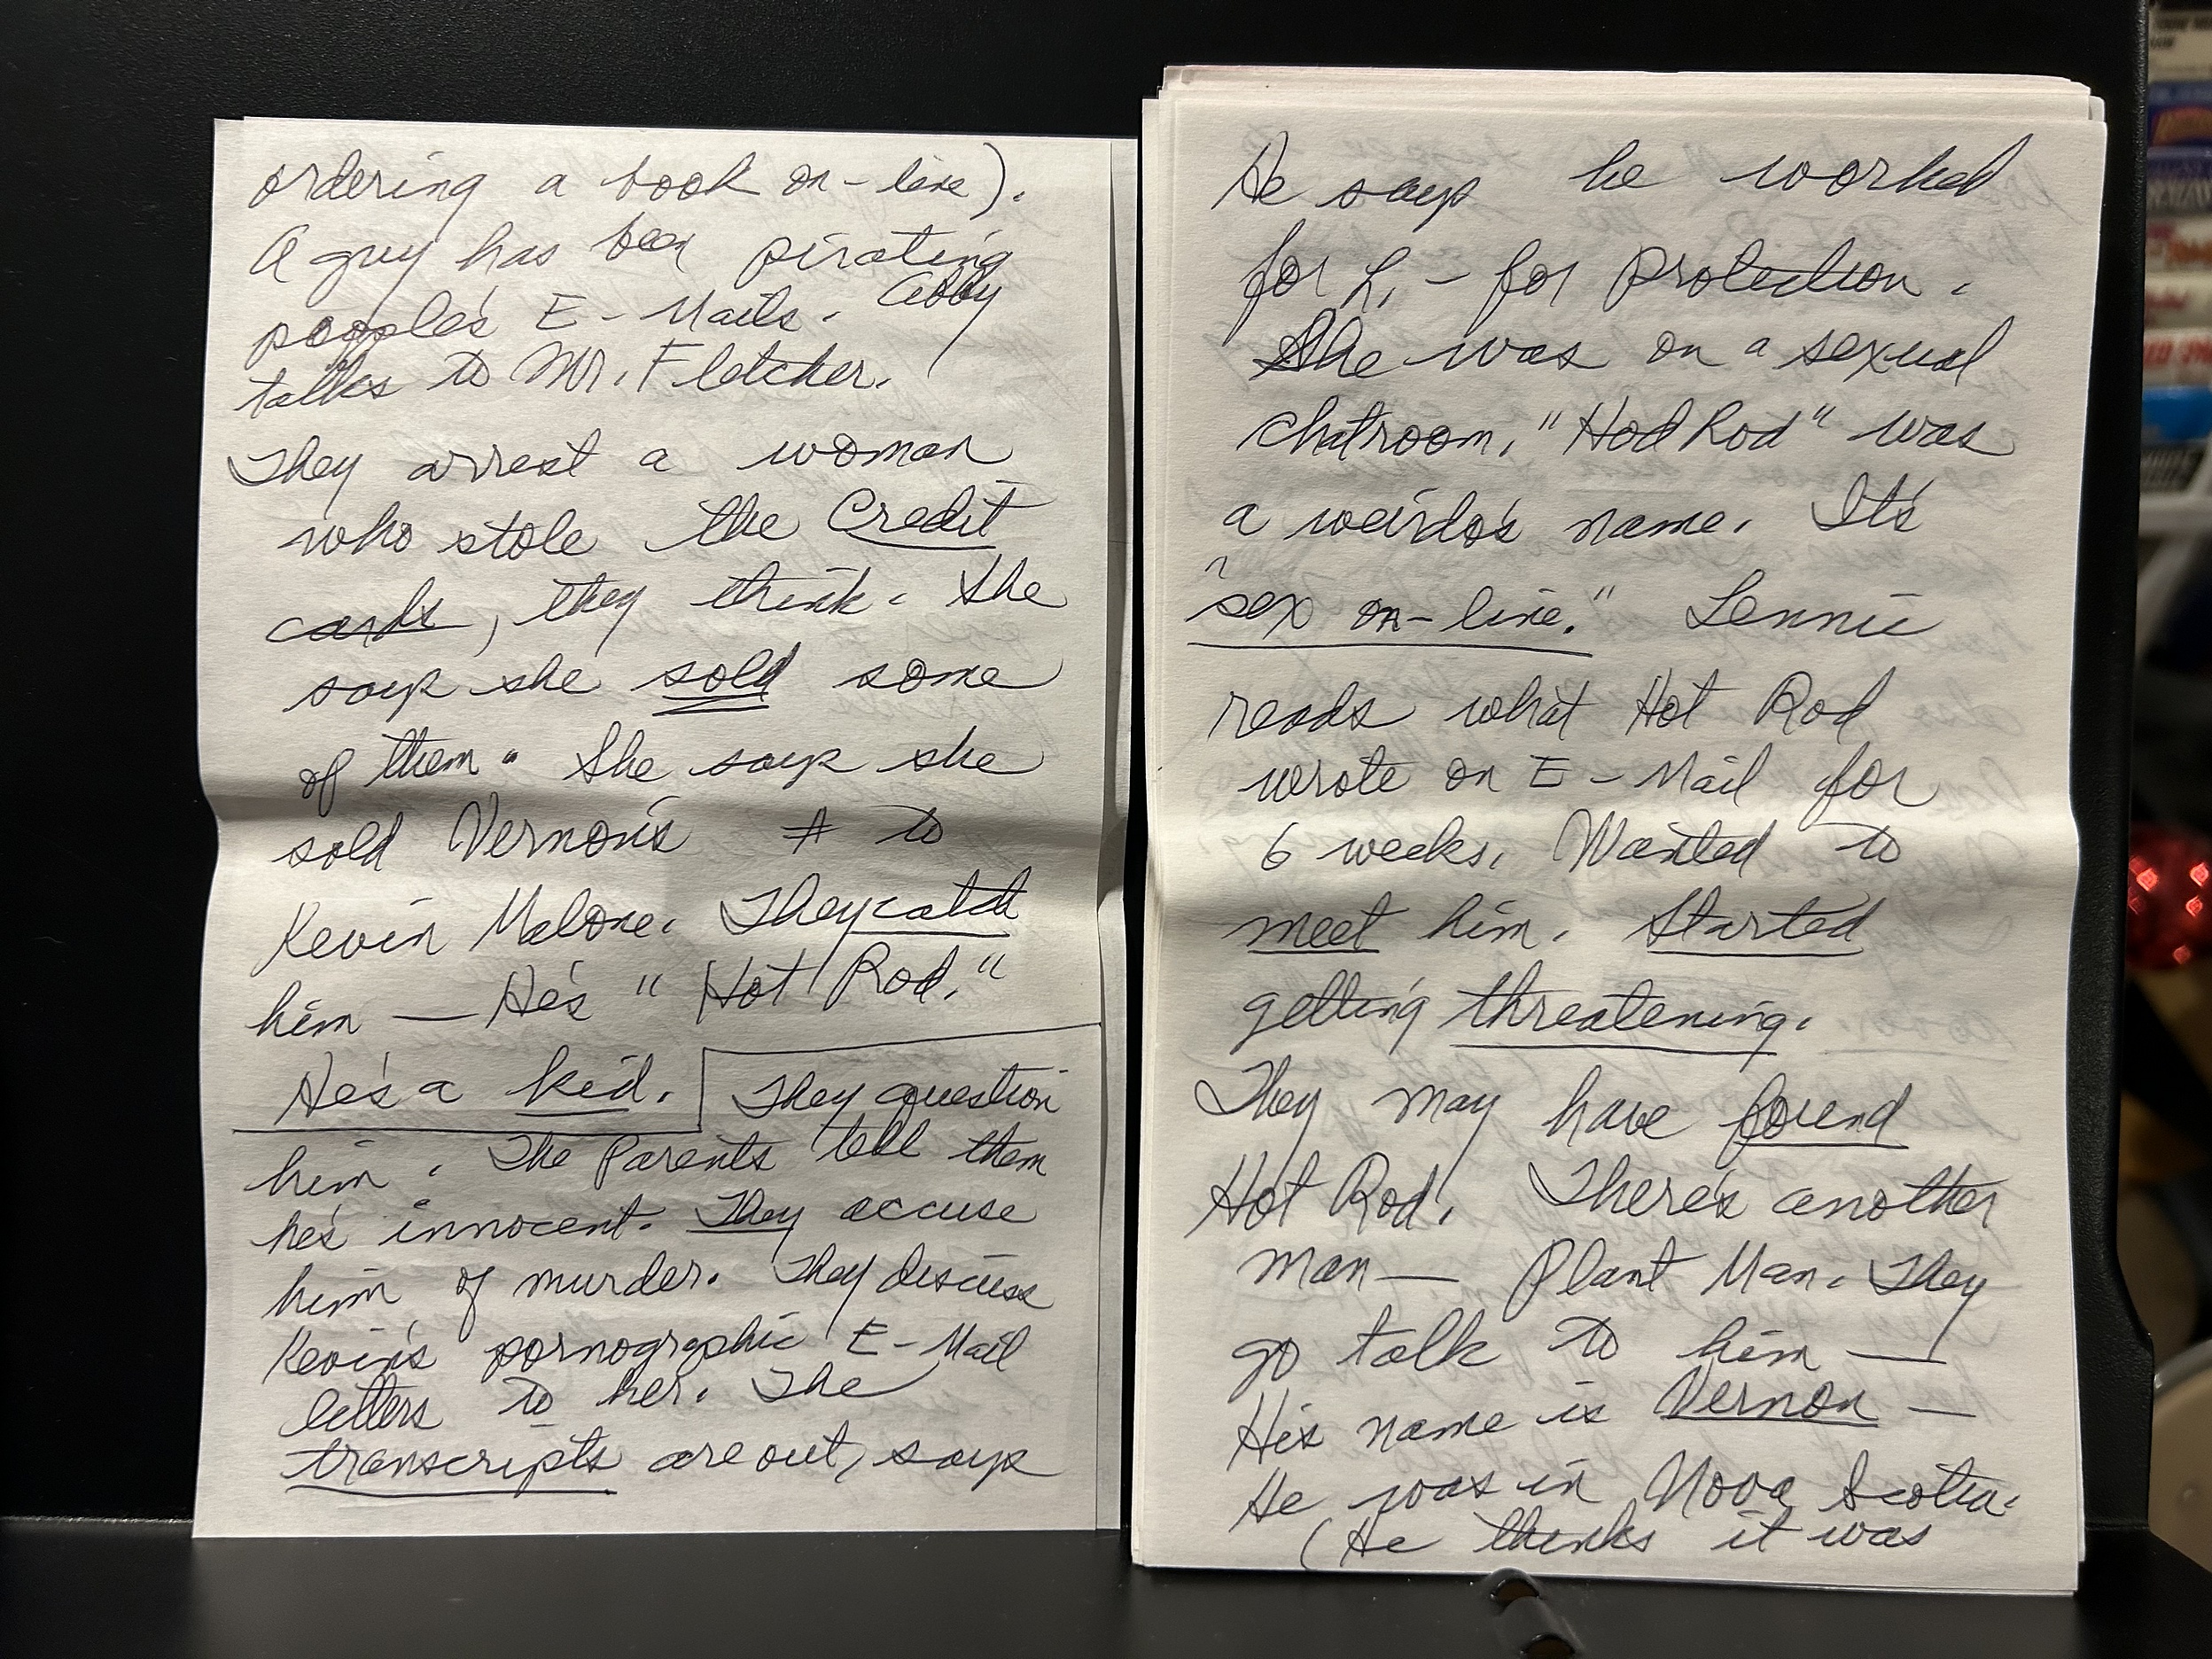 ordering a book on-line).
A guy has been pirating
people's E-Mails. Abby
talks to Mr. Fletcher.
They arrest a woman
who stole the Credit
cards, they think. She
says she sold some
of them. She says she
sold Vernon's # to
Kevin Malone. They catch
him — He's "Hot Rod."
He's a kid. They question
him. The Parents tell them
he's innocent. They accuse
him of murder. They discuss
Kevin's pornographic E-Mail
letters to her. The
transcripts are out, says
He says he worked
for L. - for protection.
She was on a sexual
chatroom. "Hod Rod" was
a weirdo's name. It's
"sex on-line." Lennie
reads what Hot Rod
wrote on E-Mail for
6 weeks. Wanted to
meet him. Started
getting threatening.
They may have found
Hot Rod. There's another
man — Plant Man. They
go talk to him —
His name is Vernon —
He was in Nova Scotia.
(He thinks it was